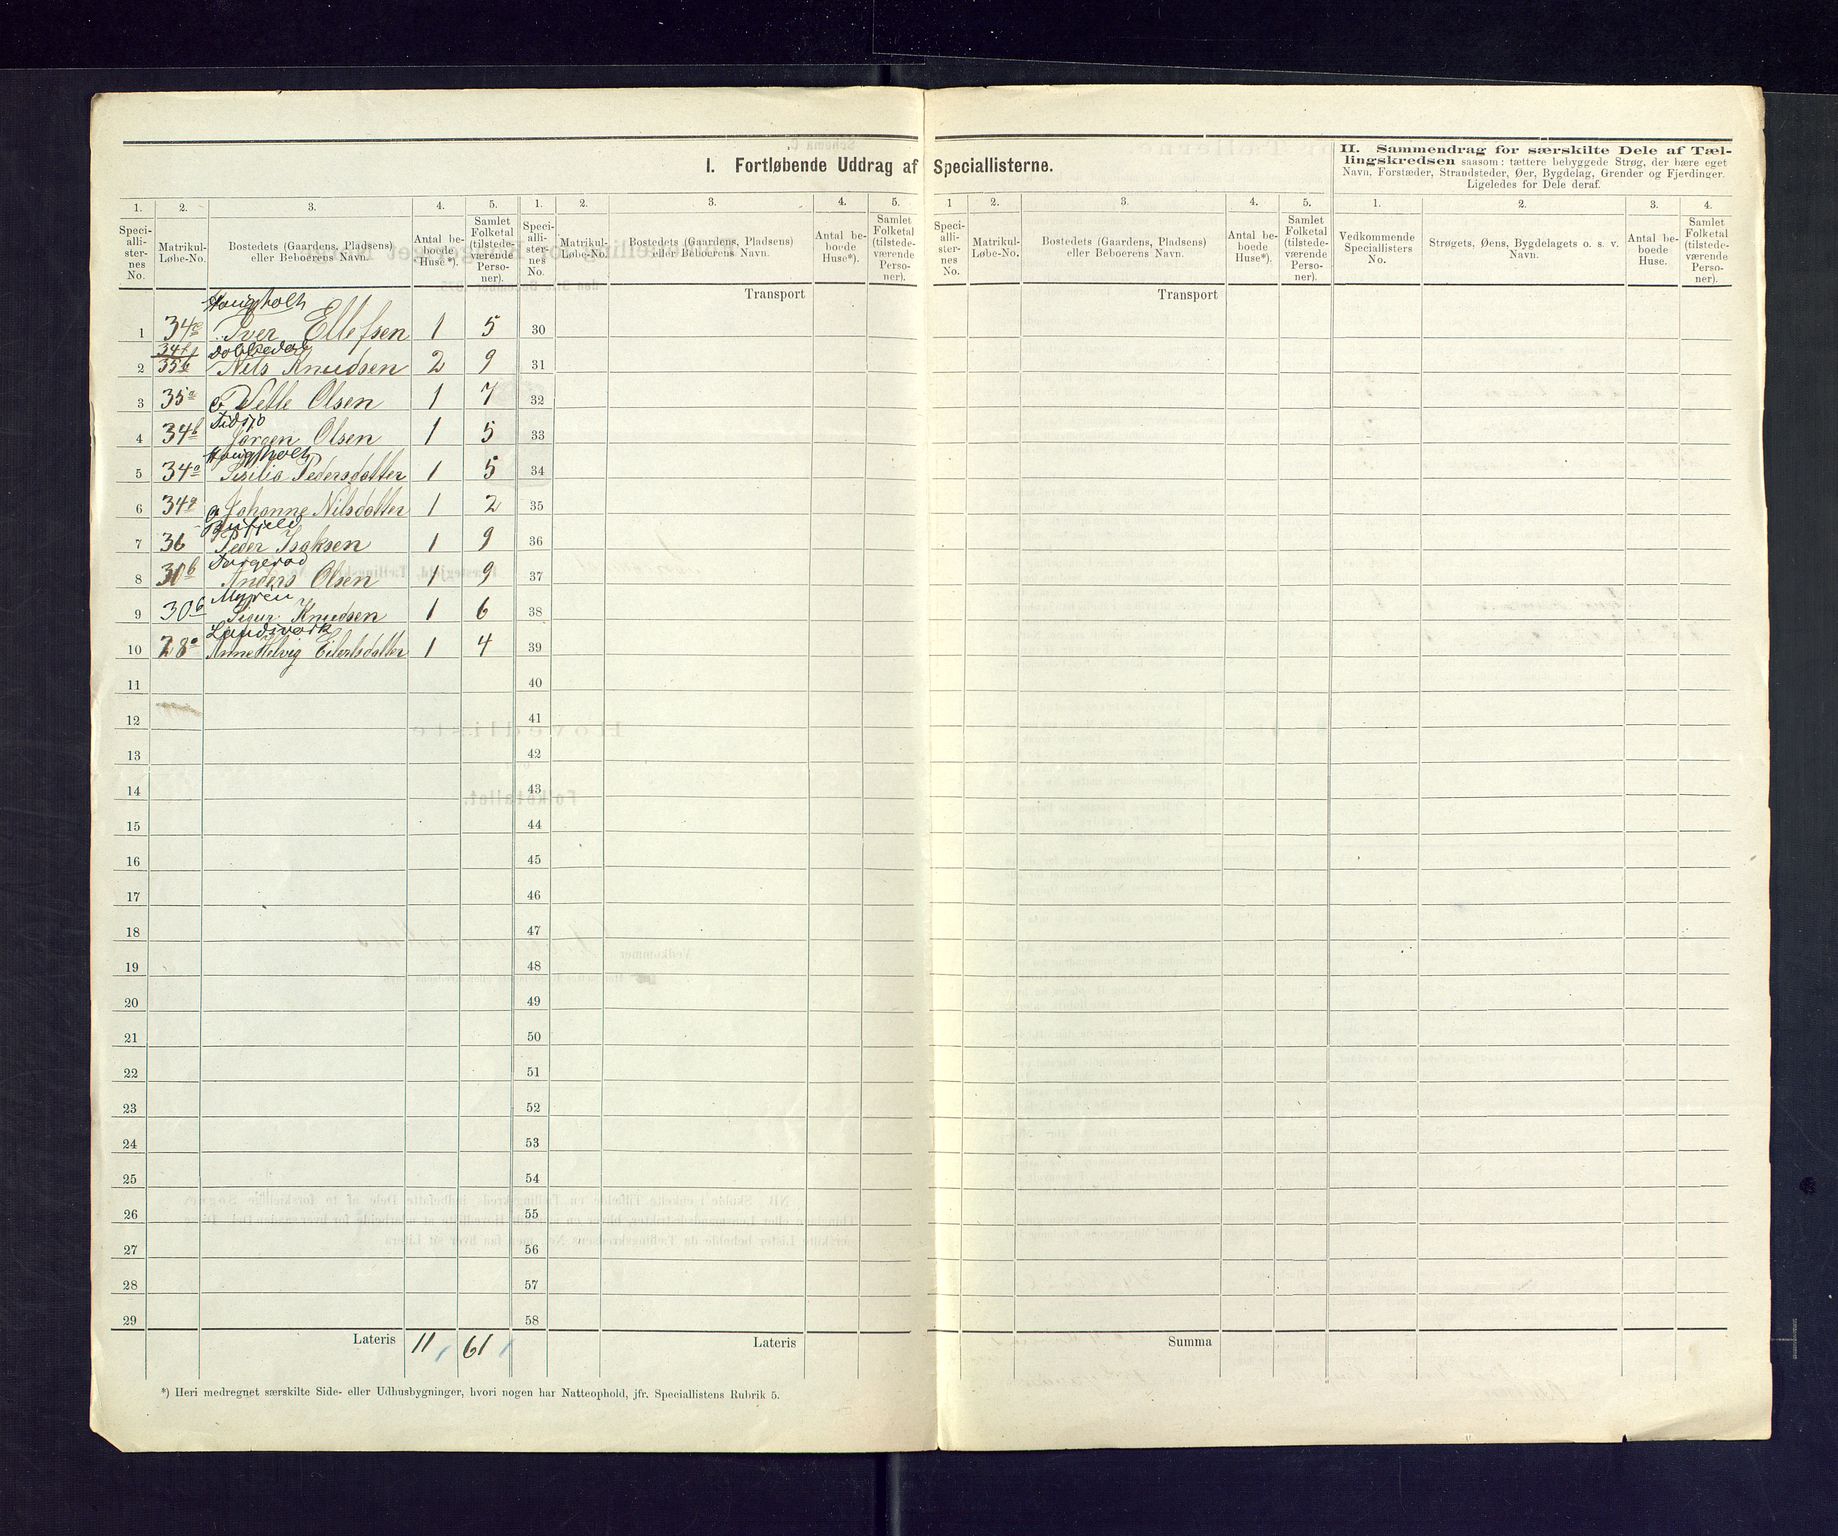 I. Fortløbende Uddrag af Speciallisterne.
II. Sammendrag for særskilte Dele af Tæl-
lingskredsen saasom: tættere bebyggede Strøg, der bære eget
Navn, Forstæder, Strandsteder, Øer, Bygdelag, Grender og Fjerdinger.
Ligeledes for Dele deraf.
1. 2. 3. 4. 5. 1. 2. 3. 4. 5. 1 2. 3. 4. 5. 1. 2. 3. 4.
Speci-alli-ster-nes No. Matrikul-Løbe-No. Bostedets (Gaardens, Pladsens) eller Beboerens Navn. Antal be-boede Huse*). Samlet Folketal (tilstede-værende Perso-ner).
Speci-alli-ster-nes No. Matrikul-Løbe-No. Bostedets (Gaardens, Pladsens) eller Beboerens Navn. Antal be-boede Huse*). Samlet Folketal (tilstede-værende Perso-ner).
Speci-alli-ster-nes No. Matrikul-Løbe-No. Bostedets (Gaardens, Pladsens) eller Beboerens Navn. Antal be-boede Huse*). Samlet Folketal (tilstede-værende Perso-ner).
Vedkommende Speciallisters No. Strøgets, Øens, Bygdelagets o. s. v. Navn. Antal be-boede Huse. Samlet Folketal (tilstede-værende Perso-ner).
Transport Transport
Haugholt
1 34 Iver Ellefsen 1 5 30
34
2 35b Nils Knudsen 2 9 31
3 35a Olsen 1 7 32
4 34b Jørgen Olsen 1 5 33
Haugholt
5 34a Sisilia Pedersdatter 1 5 34
6 34a Johanne Nilsdatter 1 2 35
7 36 Peder Isaksen 1 9 36
Torgerød
8 30b Anders Olsen 1 9 37
Myren
9 30b Sigur Knudsen 1 6 38
Landsverk
10 28a Anne Helvig Eilertsdatter 1 4 39
11 40
12 41
13 42
14 43
15 44
16 45
17 46
18 47
19 48
20 49
21 50
22 51
23 52
24 53
25 54
26 55
27 56
28 57
29 58
Lateris 11 61 Lateris Summa
*) Heri medregnet særskilte Side- eller Udhusbygninger, hvori nogen har Natteophold, jfr. Speciallistens Rubrik 5.